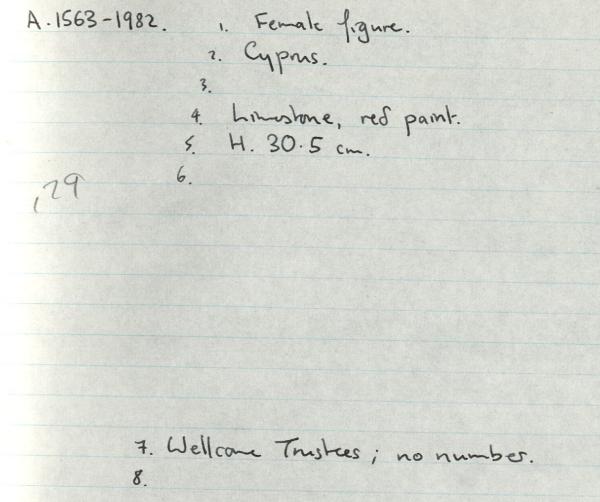 A.1563-1982. 1. Female figure.
2. Cyprus.
3.
4. Limestone, red paint.
5. H. 30.5 cm.
6.
,29
7. Wellcome Trustees; no number.
8.